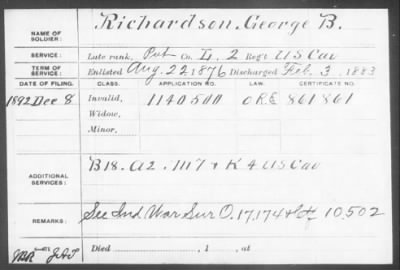 NAME OF SOLDIER: Richardson, George B.
SERVICE: Late rank, Pvt Co. L, 2 Reg't US Cav
TERM OF SERVICE: Enlisted Aug. 22, 1876 Discharged Feb. 3, 1883
DATE OF FILING. CLASS. APPLICATION NO. LAW. CERTIFICATE NO.
1892 Dec 8 Invalid, 1140500 861861
Widow,
Minor,
ADDITIONAL SERVICES: K 4 US Cav
REMARKS: See Ind War Sur O. 17,174 10,502
Died , 1 , at